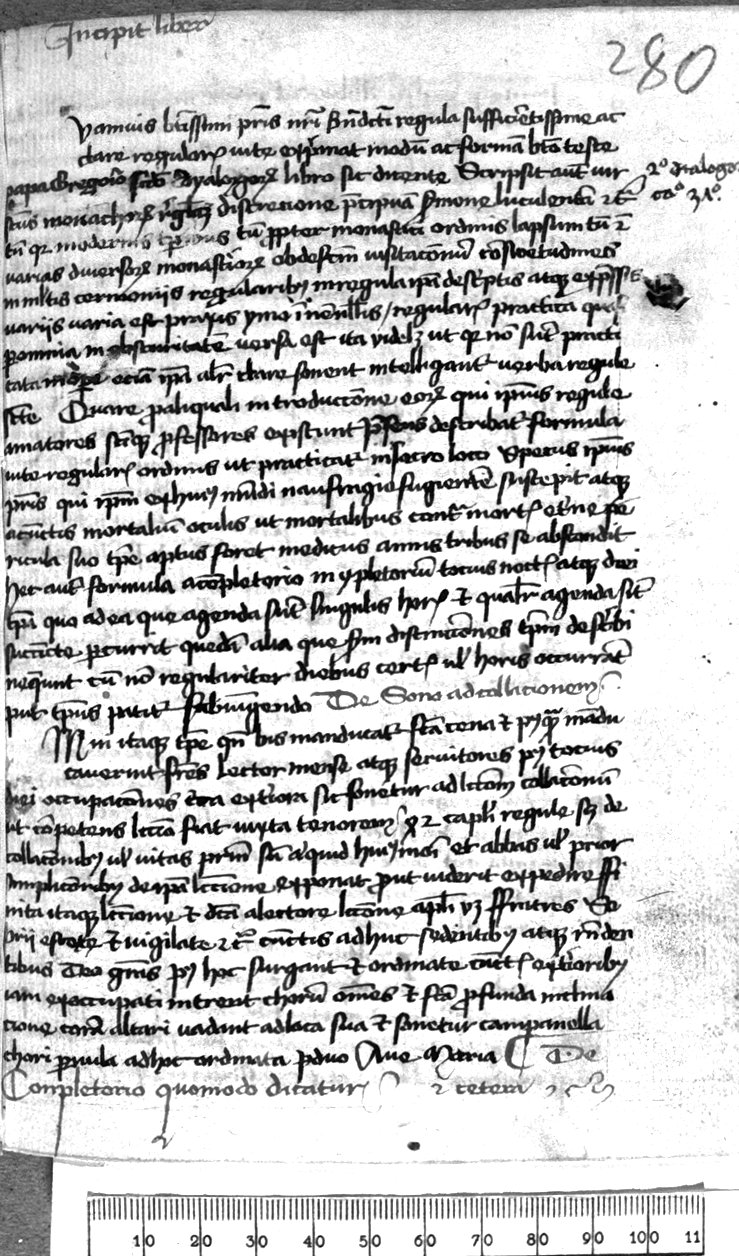 Incipit liber
280
vamuis btissimi pris nri Bndcti regula sufficietissime ac
clare regularis uite exprimat modu ac forma bto teste
papa Gregorio scdo dyalogorum libro sic dicente Scripsit aut vir
2o dialogo
scus monachorum reglam discretione precipuam sermone luculentam etc
ca° 31°.
tu qr modernis temporibus tum propter monastici ordinis lapsum tum
varias diversorum monasteriorum obdescim uisitaconum consuetudines
in multis cerimoniis regularibus in regula ipa descriptis atque expressis
variis varia est praxis ymo in nonullis regularis practica quasi
per omnia in obscuritatem versa est ita videlicet ut qr non sunt practi
cata in opere eciam ipa alr clare sonent intelligantur verba regule
sce Quare pro aliquali introduccione eorum qui ipius regule
amatores sanctique professores existunt presens describatur formula
uite regularis ordinis ut practicatur in sacro loco Specus ipius
pris qui ipm ex huius mundi naufragio fugientem suscepit atque
a cunctis mortalium oculis ut mortalibus contra mortis eterne pe
ricula suo tpe aptus foret medicus annis tribus se abscondit
hec aut formula a completorio in completorium tocius noctis atque diei
tpa quo ad ea que agenda sunt singulis horis et qualr agenda sit
succincte percurrit quedam alia que secundum distincciones tpm describi
nequeunt cum non regulariter diebus certis vel horis occurrant
put tpus patitur subiungendo De Sono ad collacionem
In itaque tpe quo bis manducatur facta cena et postquam mandu
caverint fres lector mense atque servitores post tocius
diei occupacones circa exteriora sic sonetur ad lctom collaconum
ut competens lccio fiat iuxta tenorem 42 capli regule scz de
collaconibus vel vitas prum seu aliquid huiusmodi et abbas vel prior
simplicioribus de ipa lccione exponat prout viderit expedire ffi
nita itaque lccione et dcta a lectore lccone apli vz ffratres So
brii estote et vigilate etc cunctis adhuc sedentibus atque rnden
tibus Deo gras post hoc surgant et ordinate cuncti exterioribus
iam exoccupati intrent chorum omnes et facta profunda inclina
cione coram altari vadant ad loca sua et sonetur campanella
chori parvula ad hoc ordinata pro duo Ave Maria De
Completorio quomodo dicatur et cetera
10 20 30 40 50 60 70 80 90 100 11